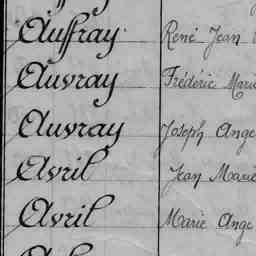 Auffray René Jean
Auvray Frédéric Marie
Auvray Joseph Ange
Avril Jean Marie
Avril Marie Ange